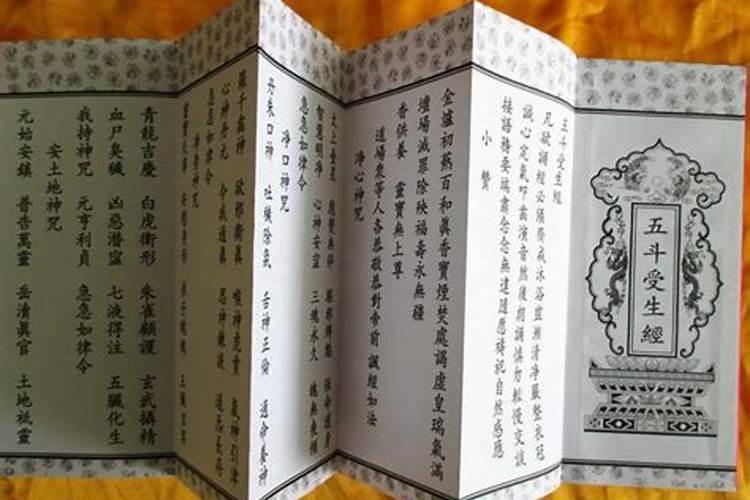 五斗受生經
五斗受生經
凡欲誦經必須齋戒沐浴盥漱清淨嚴整衣冠
誠心定氣叩齒演音然後朗誦慎勿輕慢交談
接語務要端肅念念無違隨願禱祀自然感應
小讚
金爐初爇百和真香寶煙焚處謁虛皇瑞氣滿
壇場滅罪除殃福壽永無疆
香供養 靈寶無上尊
道場衆等人各恭敬恭對帝前 誦經如法
淨心神咒
太上台星 應變無停 驅邪縛魅 保命護身
智慧明淨 心神安寧 三魂永久 魄無喪傾
急急如律令
淨口神咒
丹朱口神 吐穢除氛 舌神正倫 通命養神
羅千齒神 卻邪衛真 喉神虎賁 氣神引津
心神丹元 令我通真 思神鍊液 道炁長存
急急如律令
淨身神咒
靈寶天尊 安慰身形 弟子魂魄 五臟玄冥
青龍吉慶 白虎衛形 朱雀顧護 玄武攝精
血尸臭穢 凶惡潛寍 七液得注 五臟化生
我持神咒 元亨利貞 急急如律令
安土地神咒
元始安鎮 普告萬靈 岳瀆真官 土地祇靈